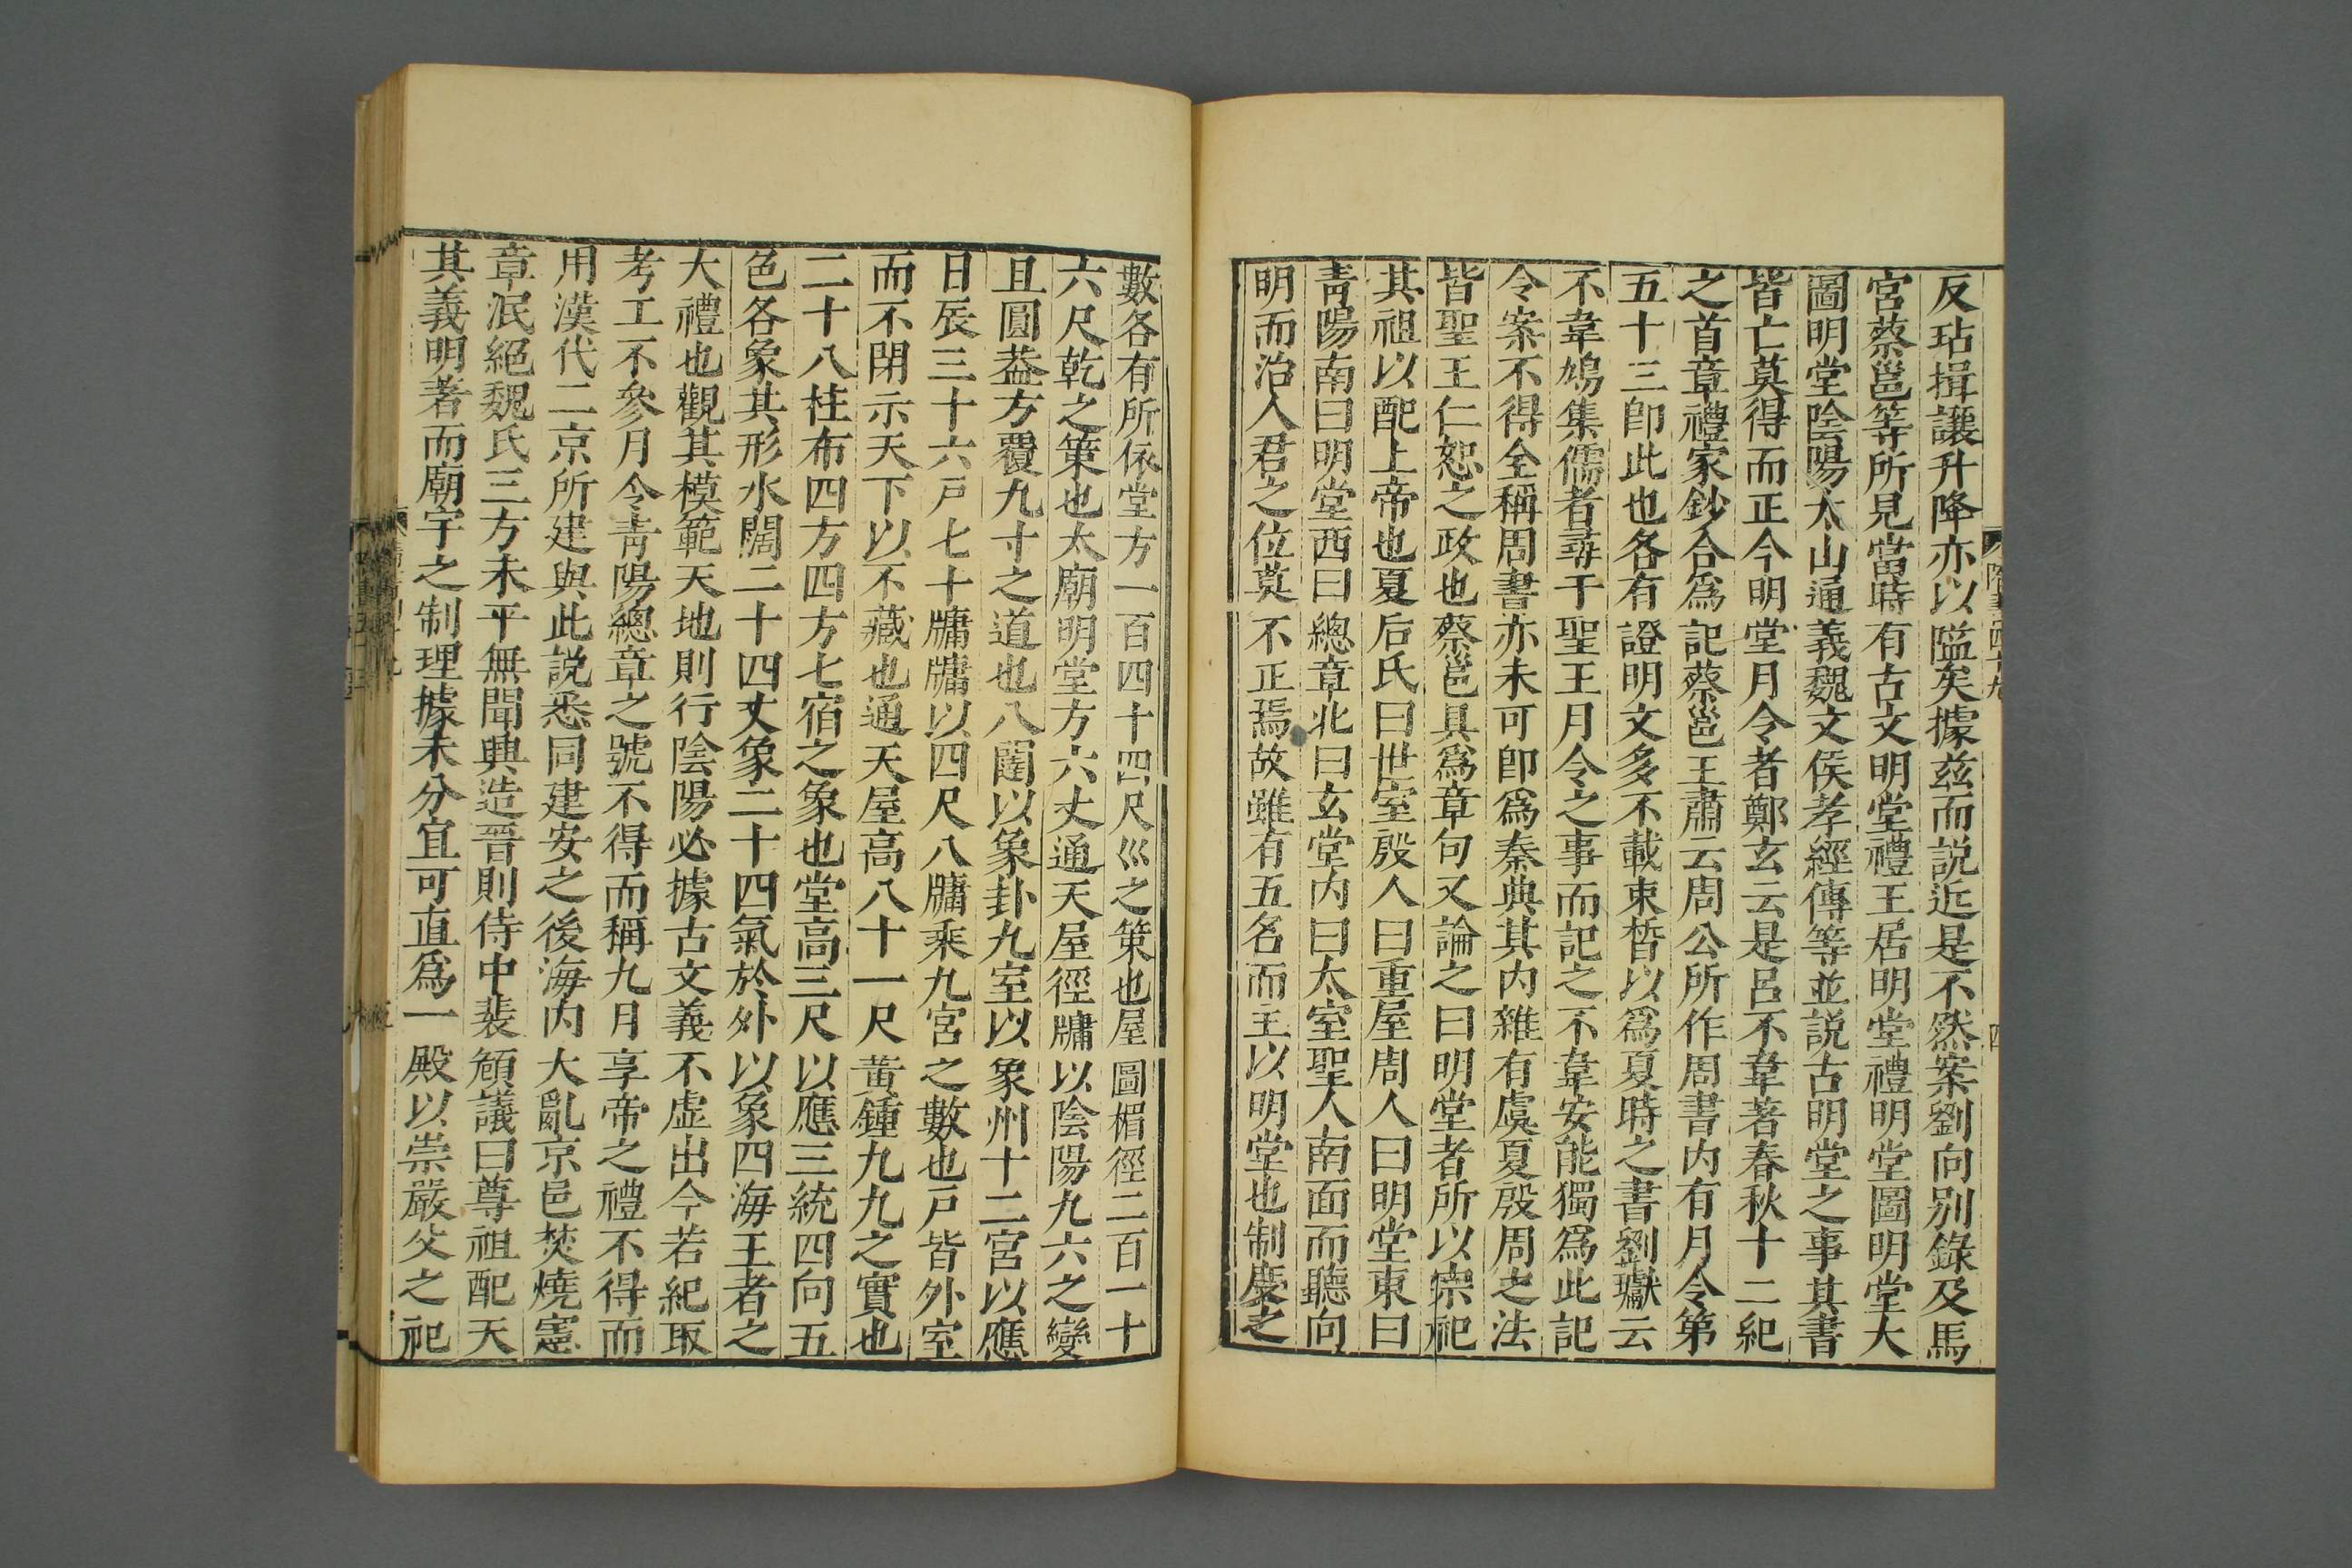 反玷揖讓升降亦以隘矣據兹而説近是不然案劉向别錄及馬
宮蔡邕等所見當時有古文明堂禮王居明堂禮明堂圖明堂大
圖明堂陰陽太山通義魏文侯孝經傳等並説古明堂之事其書
皆亡莫得而正今明堂月令者鄭玄云是呂不韋著春秋十二紀
之首章禮家鈔合爲記蔡邕王肅云周公所作周書内有月令第
五十三即此也各有證明文多不載束晳以爲夏時之書劉瓛云
不韋鳩集儒者尋于聖王月令之事而記之不韋安能獨爲此記
令案不得全稱周書亦未可即爲秦典其内雜有虞夏殷周之法
皆聖王仁恕之政也蔡邕具爲章句又論之曰明堂者所以宗祀
其祖以配上帝也夏后氏曰世室殷人曰重屋周人曰明堂東曰
青陽南曰明堂西曰總章北曰玄堂内曰太室聖人南面而聽向
明而治人君之位莫不正焉故雖有五名而主以明堂也制度之
數各有所依堂方一百四十四尺巛之策也屋圖楣徑二百一十
六尺乾之策也太廟明堂方六丈通天屋徑牗以陰陽九六之變
且圓葢方覆九寸之道也八闥以象卦九室以象州十二宮以應
日辰三十六戸七十牗牗以四尺八牗乘九宮之數也戸皆外室
而不閉示天下以不藏也通天屋高八十一尺黃鍾九九之實也
二十八柱布四方四方七宿之象也堂高三尺以應三統四向五
色各象其形水闊二十四丈象二十四氣於外以象四海王者之
大禮也觀其模範天地則行陰陽必據古文義不虛出今若紀取
考工不參月令青陽總章之號不得而稱九月享帝之禮不得而
用漢代二京所建與此説悉同建安之後海内大亂京邑焚燒憲
章泯絕魏氏三方未平無聞興造晉則侍中裴頠議曰尊祖配天
其義明著而廟宇之制理據未分宜可直爲一殿以崇嚴父之祀